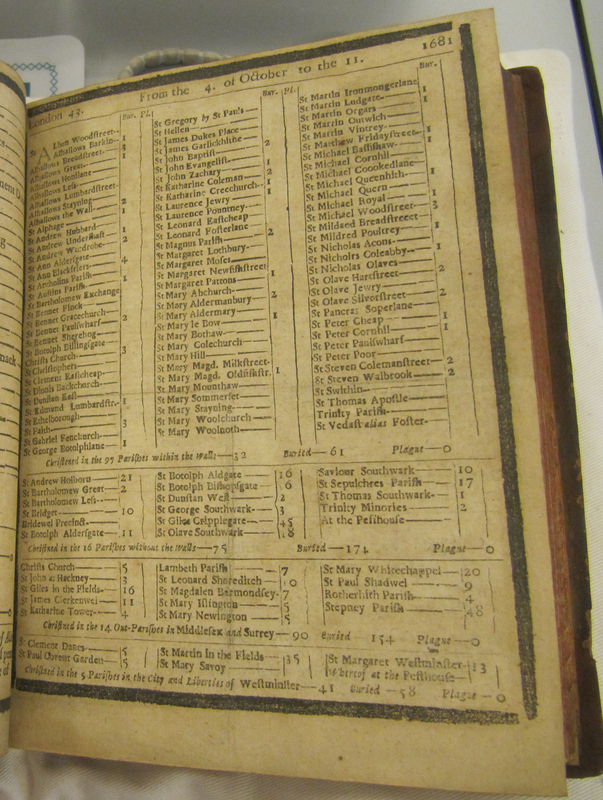 London 43. From the 4. of October to the 11. 1681
Bur. Pl.
St Alban Woodstreet
Alhallows Barkin 1
Alhallows Breadstreet 3
Alhallows Great 1
Alhallows Honilane
Alhallows Less
Alhallows Lumbardstreet
Alhallows Stayning
Alhallows the Wall 2
St Alphage 1
St Andrew Hubbard
St Andrew Undershaft 1
St Andrew Wardrobe 2
St Ann Aldersgate
St Ann Blackfriers 4
St Antholins Parish
St Austins Parish 1
St Bartholomew Exchange
St Bennet Finck
St Bennet Gracechurch
St Bennet Paulswharf 2
St Bennet Sherehog
St Botolph Billingsgate
Christs Church 3
St Christophers
St Clement Eastcheap
St Dionis Backchurch
St Dunstan East
St Edmund Lumbardstr. 1
St Ethelborough
St Faith 3
St Gabriel Fenchurch
St George Botolphlane 1
Bur. Pl.
St Gregory by St Pauls
St Hellen
St James Dukes Place
St James Garlickhithe
St John Baptist 2
St John Evangelist
St John Zachary 1
St Katharine Coleman 2
St Katharine Creechurch 1
St Laurence Jewry 1
St Laurence Pountney
St Leonard Eastcheap
St Leonard Fosterlane
St Magnus Parish 2
St Margaret Lothbury
St Margaret Moses
St Margaret Newfishstreet
St Margaret Pattons 1
St Mary Abchurch
St Mary Aldermanbury 2
St Mary Aldermary
St Mary le Bow 1
St Mary Bothaw
St Mary Colechurch
St Mary Hill
St Mary Magd. Milkstreet
St Mary Magd. Oldfishstr. 1
St Mary Mounthaw
St Mary Sommerset
St Mary Stayning
St Mary Woolchurch
St Mary Woolnoth
Bur.
St Martin Ironmongerlane
St Martin Ludgate 1
St Martin Orgars
St Martin Outwich
St Martin Vintrey
St Matthew Fridaystreet 1
St Michael Bassishaw
St Michael Cornhil
St Michael Coookedlane
St Michael Queenhith 1
St Michael Quern
St Michael Royal 1
St Michael Woodstreet
St Mildred Breadstreet 3
St Mildred Poultrey
St Nicholas Acons 1
St Nicholas Coleabby
St Nicholas Olaves 1
St Olave Hartstreet
St Olave Jewry 2
St Olave Silverstreet
St Pancras Soperlane 2
St Peter Cheap
St Peter Cornhil 1
St Peter Paulswharf 1
St Peter Poor
St Steven Colemanstreet
St Steven Walbrook 2
St Swithin 2
St Thomas Apostle
Trinity Parish
St Vedast alias Foster
Christned in the 97 Parishes within the walls 32 Buried 61 Plague 0
St Andrew Holborn 21
St Bartholomew Great 2
St Bartholomew Less
St Bridget 10
Bridewel Precinct
St Botolph Aldersgate 11
St Botolph Aldgate 16
St Botolph Bishopsgate 6
St Dunstan West 2
St George Southwark 3
St Giles Cripplegate 45
St Olave Southwark 18
Saviour Southwark 10
St Sepulchres Parish 17
St Thomas Southwark 1
Trinity Minories 2
At the Pesthouse
Christned in the 16 Parishes without the walls 75 Buried 174 Plague 0
Christs Church 5
St John at Hackney 3
St Giles in the Fields 16
St James Clerkenwel 11
St Katharine Tower 4
Lambeth Parish 7
St Leonard Shoreditch 10
St Magdalen Bermondsey 7
St Mary Islington 5
St Mary Newington 5
St Mary Whitechappel 20
St Paul Shadwel 9
Rotherhith Parish 4
Stepney Parish 48
Christned in the 14 Out-Parishes in Middlesex and Surrey 90 Buried 154 Plague 0
St Clement Danes 5
St Paul Covent Garden 5
St Martin in the Fields 35
St Mary Savoy
St Margaret Westminster 13
Whereof at the Pesthouse
Christned in the 5 Parishes in the City and Liberties of Westminster 41 Buried 58 Plague 0